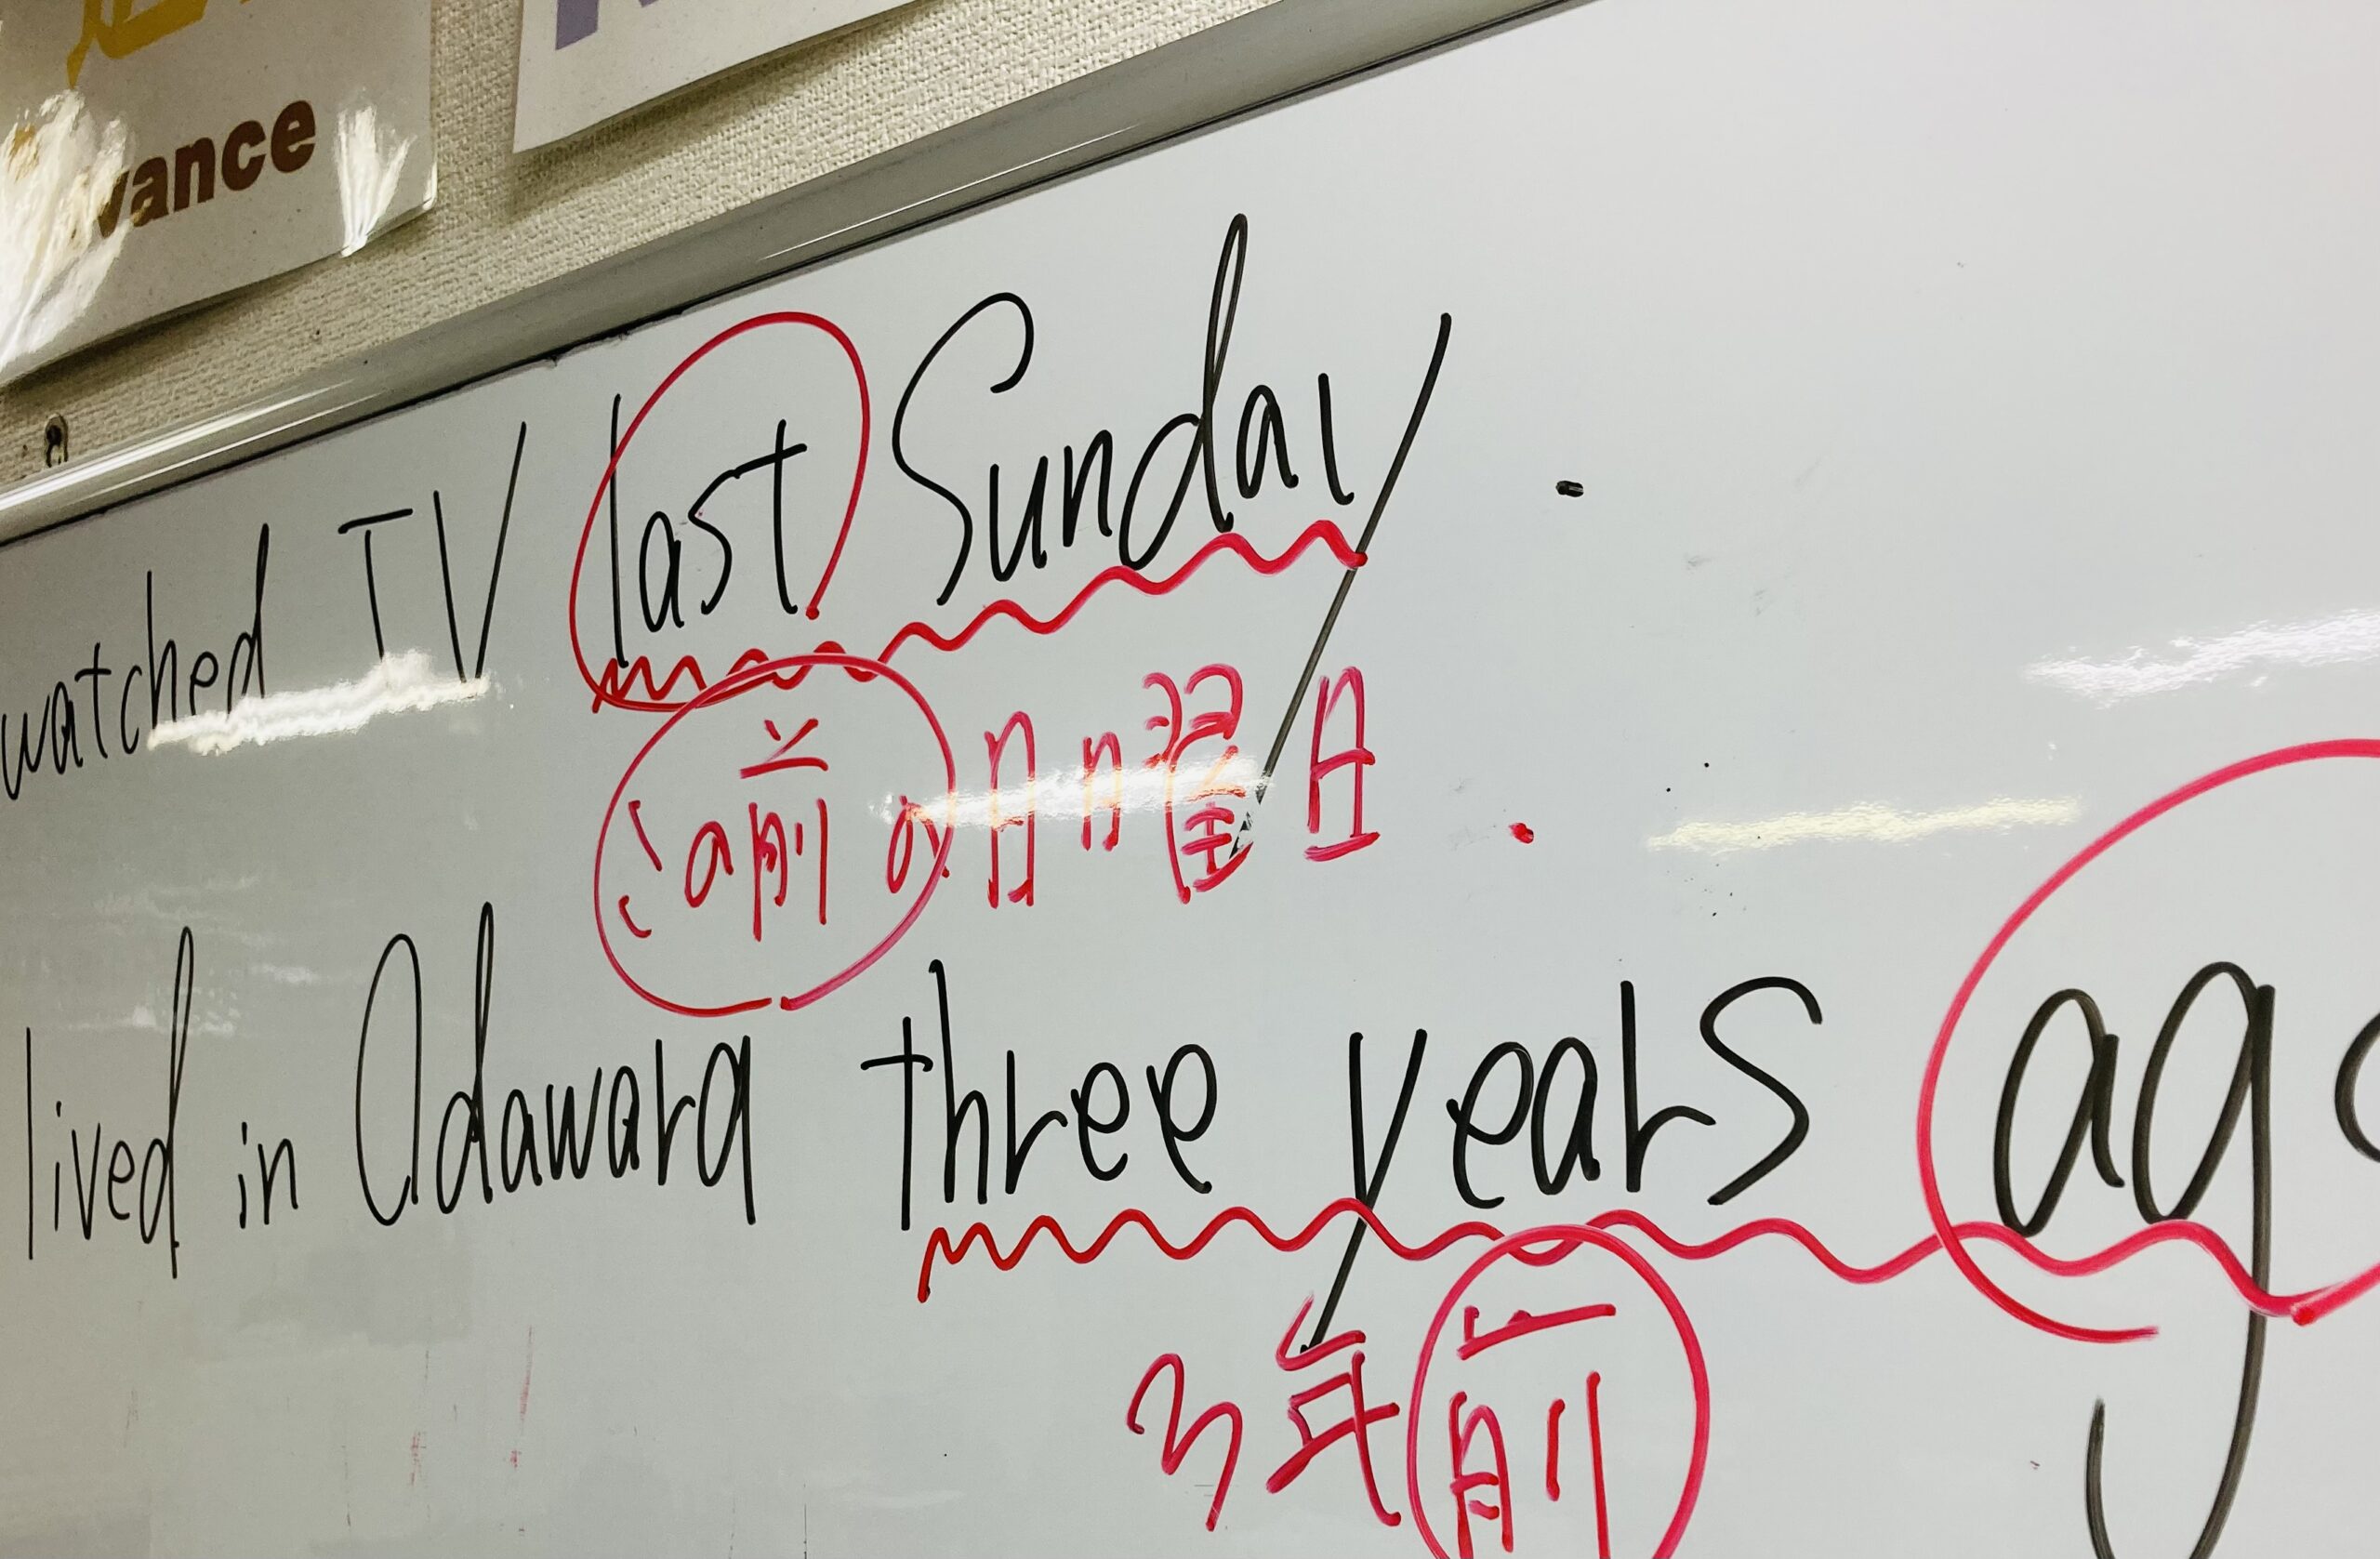 vance
watched TV last Sunday.
この前の日曜日.
lived in Odawara three years ag
3年前